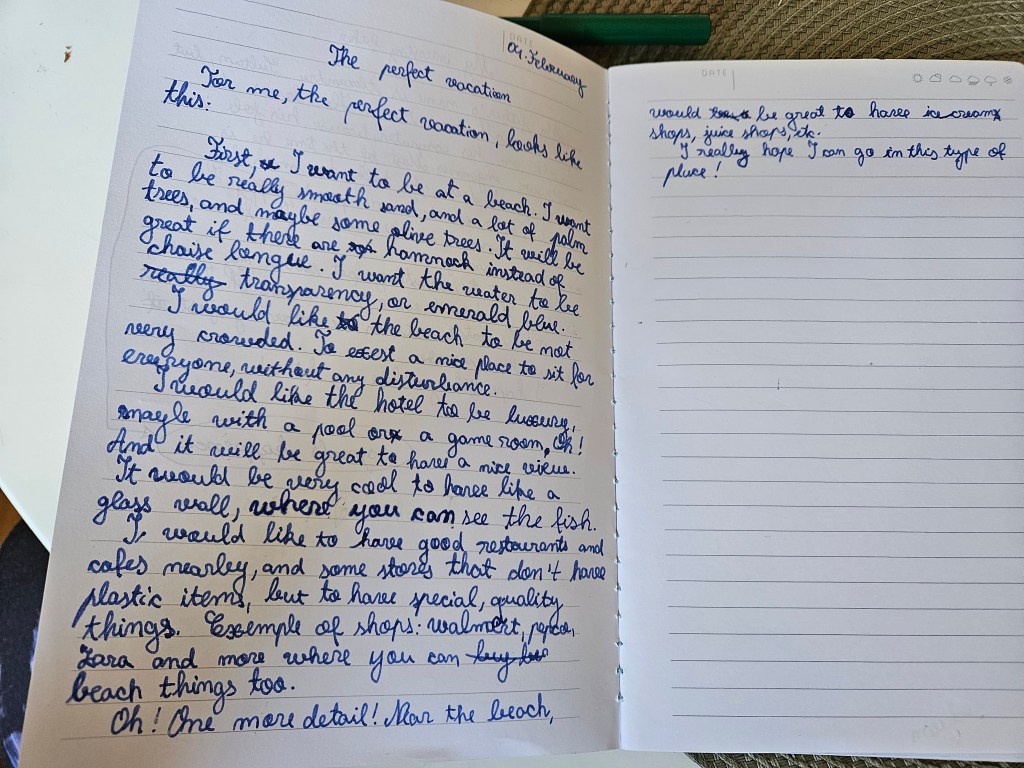 DATE
04. February
The perfect vacation
For me, the perfect vacation, looks like
this:
First, I want to be at a beach. I want
to be really smooth sand, and a lot of palm
trees, and maybe some olive trees. It will be
great if there are hammock instead of
chaise longue. I want the water to be
really transparency, or emerald blue.
I would like to the beach to be not
very crowded. To exest a nice place to sit for
everyone, without any disturbance.
I would like the hotel to be luxury,
mayle with a pool or a game room, Oh!
And it will be great to have a nice view.
It would be very cool to have like a
glass wall, where you can see the fish.
I would like to have good restaurants and
cafes nearley, and some stores that don't have
plastic items, but to have special, quality
things. Exemple of shops: walmart, pepco,
Zara and more where you can buy
beach things too.
Oh! One more detail! Near the beach,
DATE
would be great to have ice cream
shops, juice shops, etc.
I really hope I can go in this type of
place!